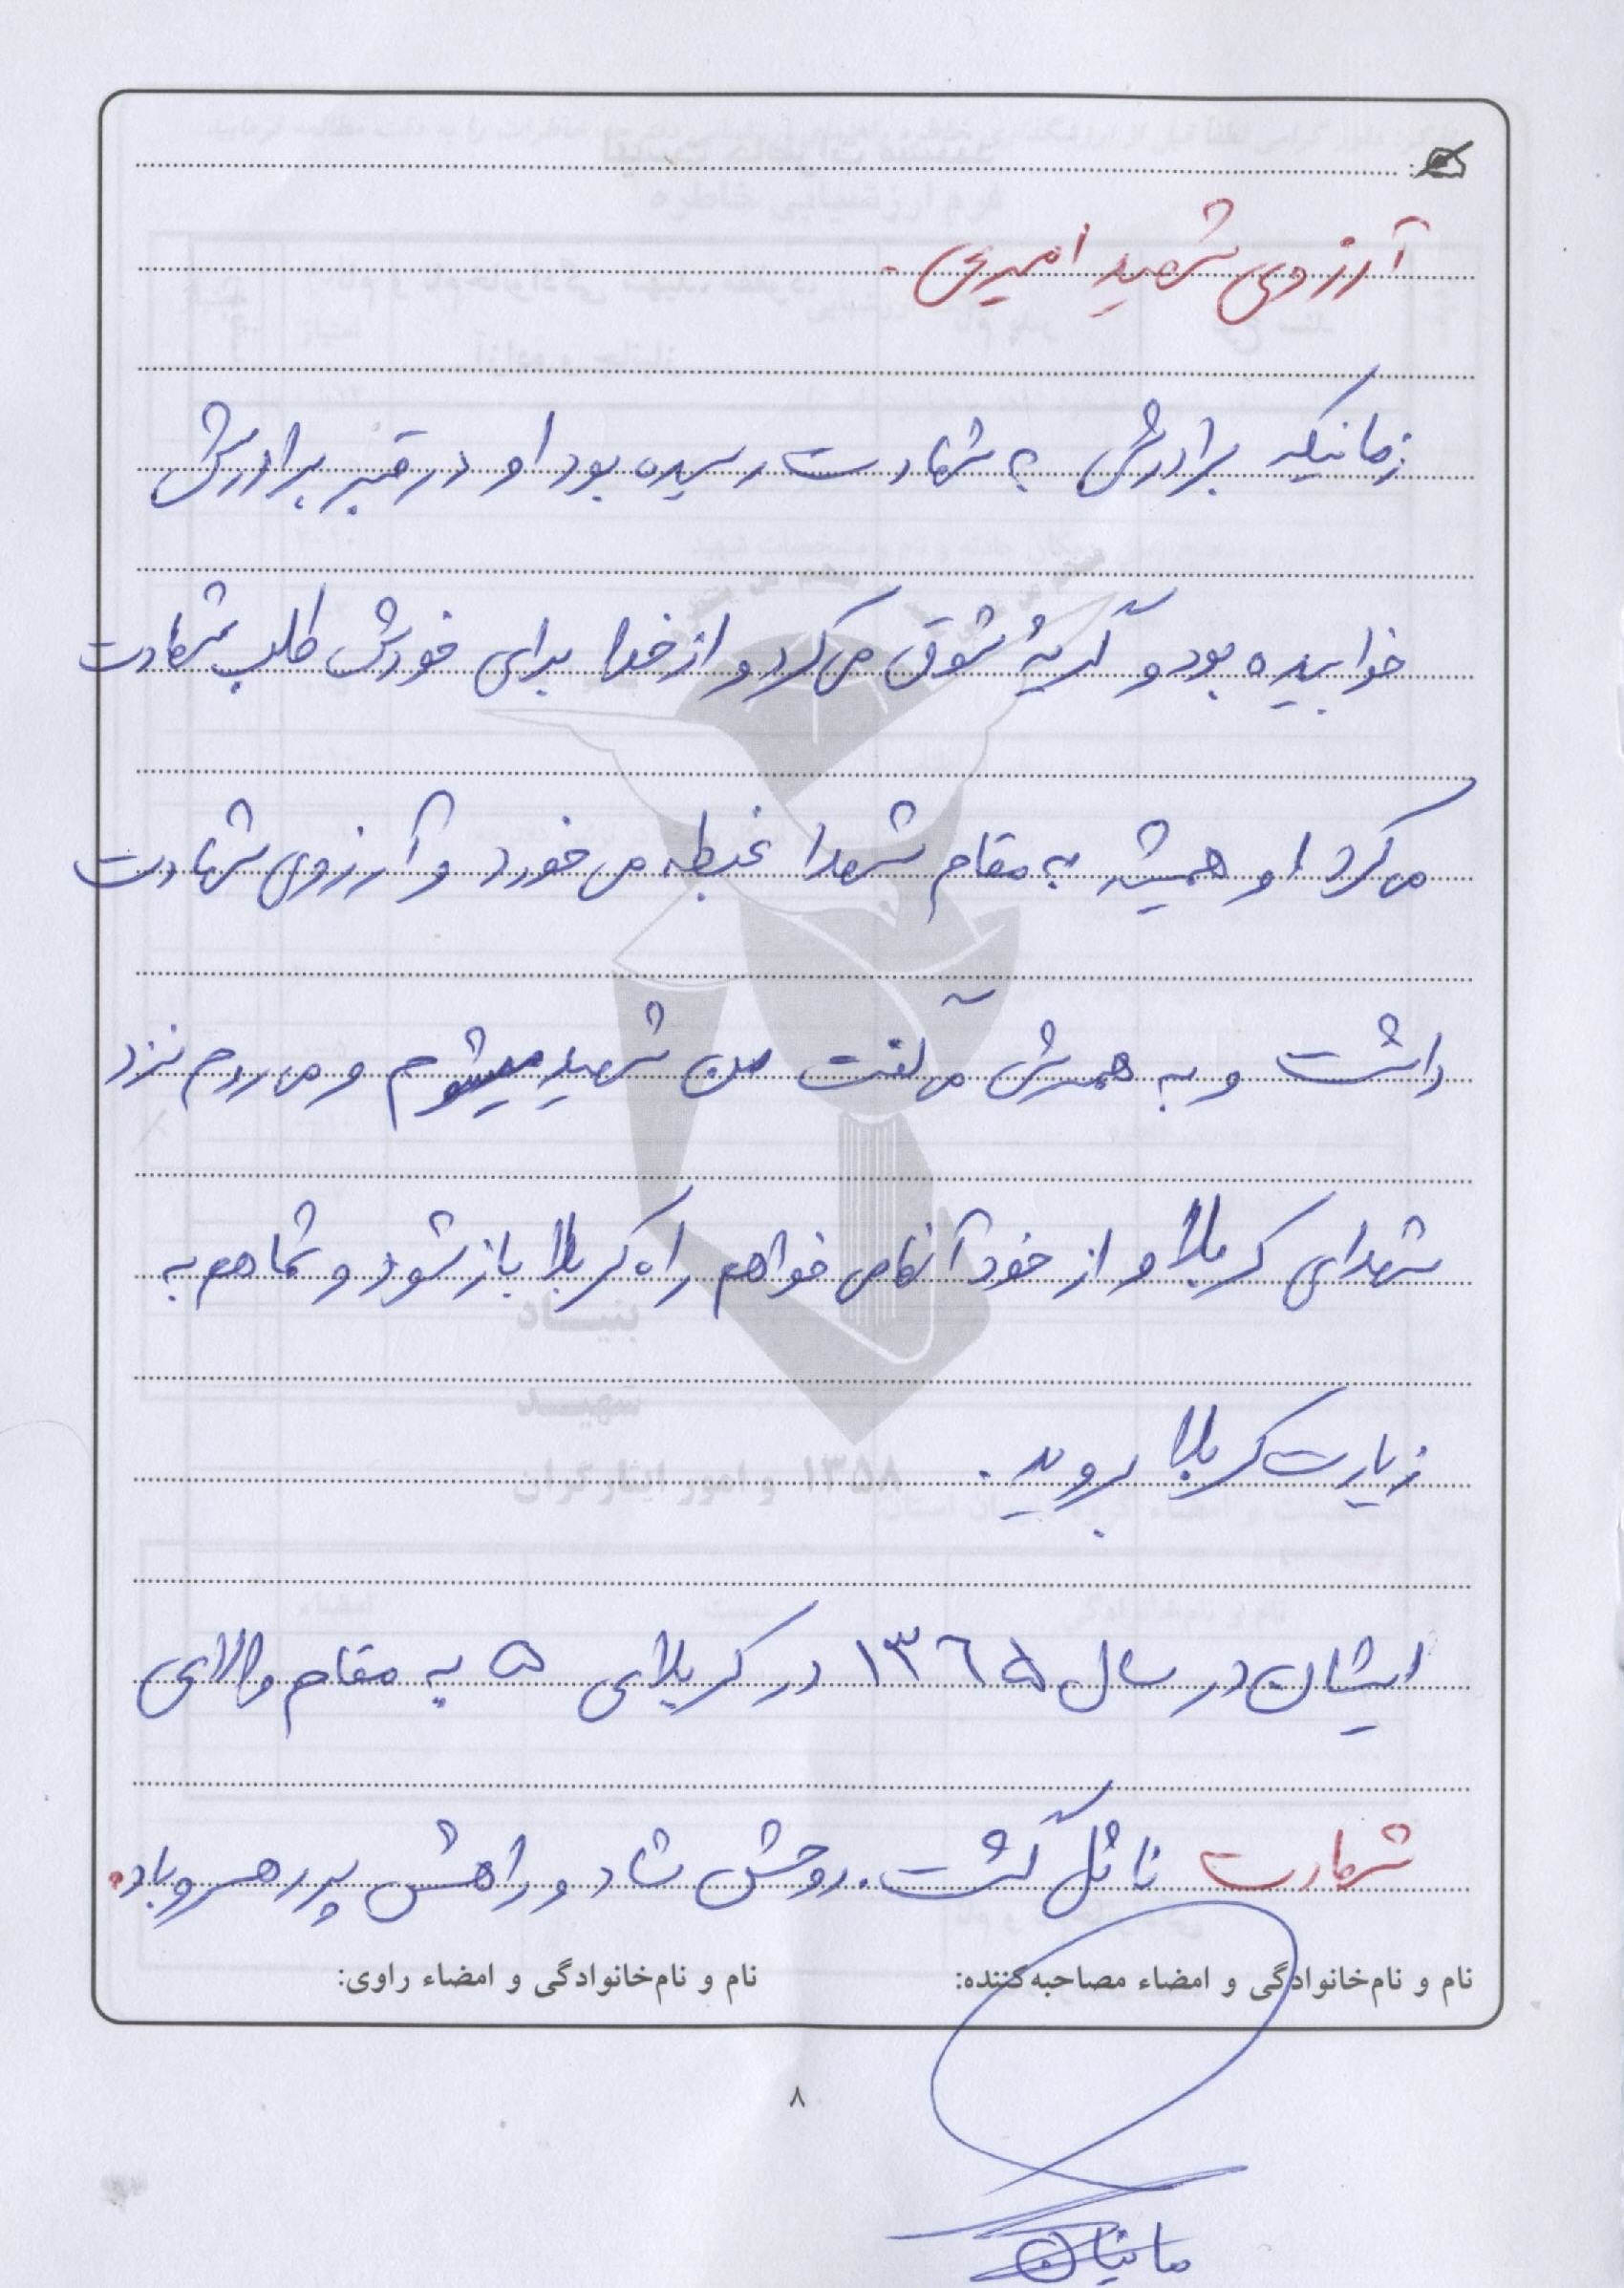 آرزوی شهید امیری.
زمانیکه برادرش به شهادت رسیده بود او در قبر برادرش
خوابیده بود و گریهٔ شوق می‌کرد و از خدا برای خودش طلب شهادت
می‌کرد او همیشه به مقام شهدا غبطه می‌خورد و آرزوی شهادت
داشت و به همسرش می‌گفت من شهید میشوم و می‌روم نزد
شهدای کربلا و از خود آنها می‌خواهم راه کربلا باز شود و شما هم به
زیارت کربلا بروید.
ایشان در سال ۱۳۶۵ در کربلای ۵ به مقام والای
شهادت نائل گشت. روحش شاد و راهش پر رهرو باد.
نام و نام‌خانوادگی و امضاء مصاحبه‌کننده: نام و نام‌خانوادگی و امضاء راوی:
۸
بنیاد
شهید
۱۳۵۸ و امور ایثارگران